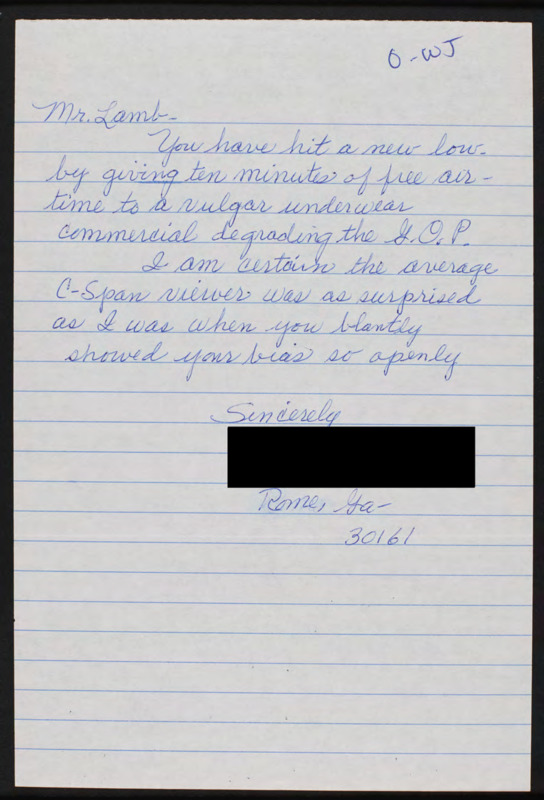 O-WJ
Mr. Lamb-
You have hit a new low-
by giving ten minutes of free air-
time to a vulgar underwear
commercial degrading the G.O.P.
I am certain the average
C-Span viewer was as surprised
as I was when you blantly
showed your bias so openly
Sincerely
Rome, Ga-
30161